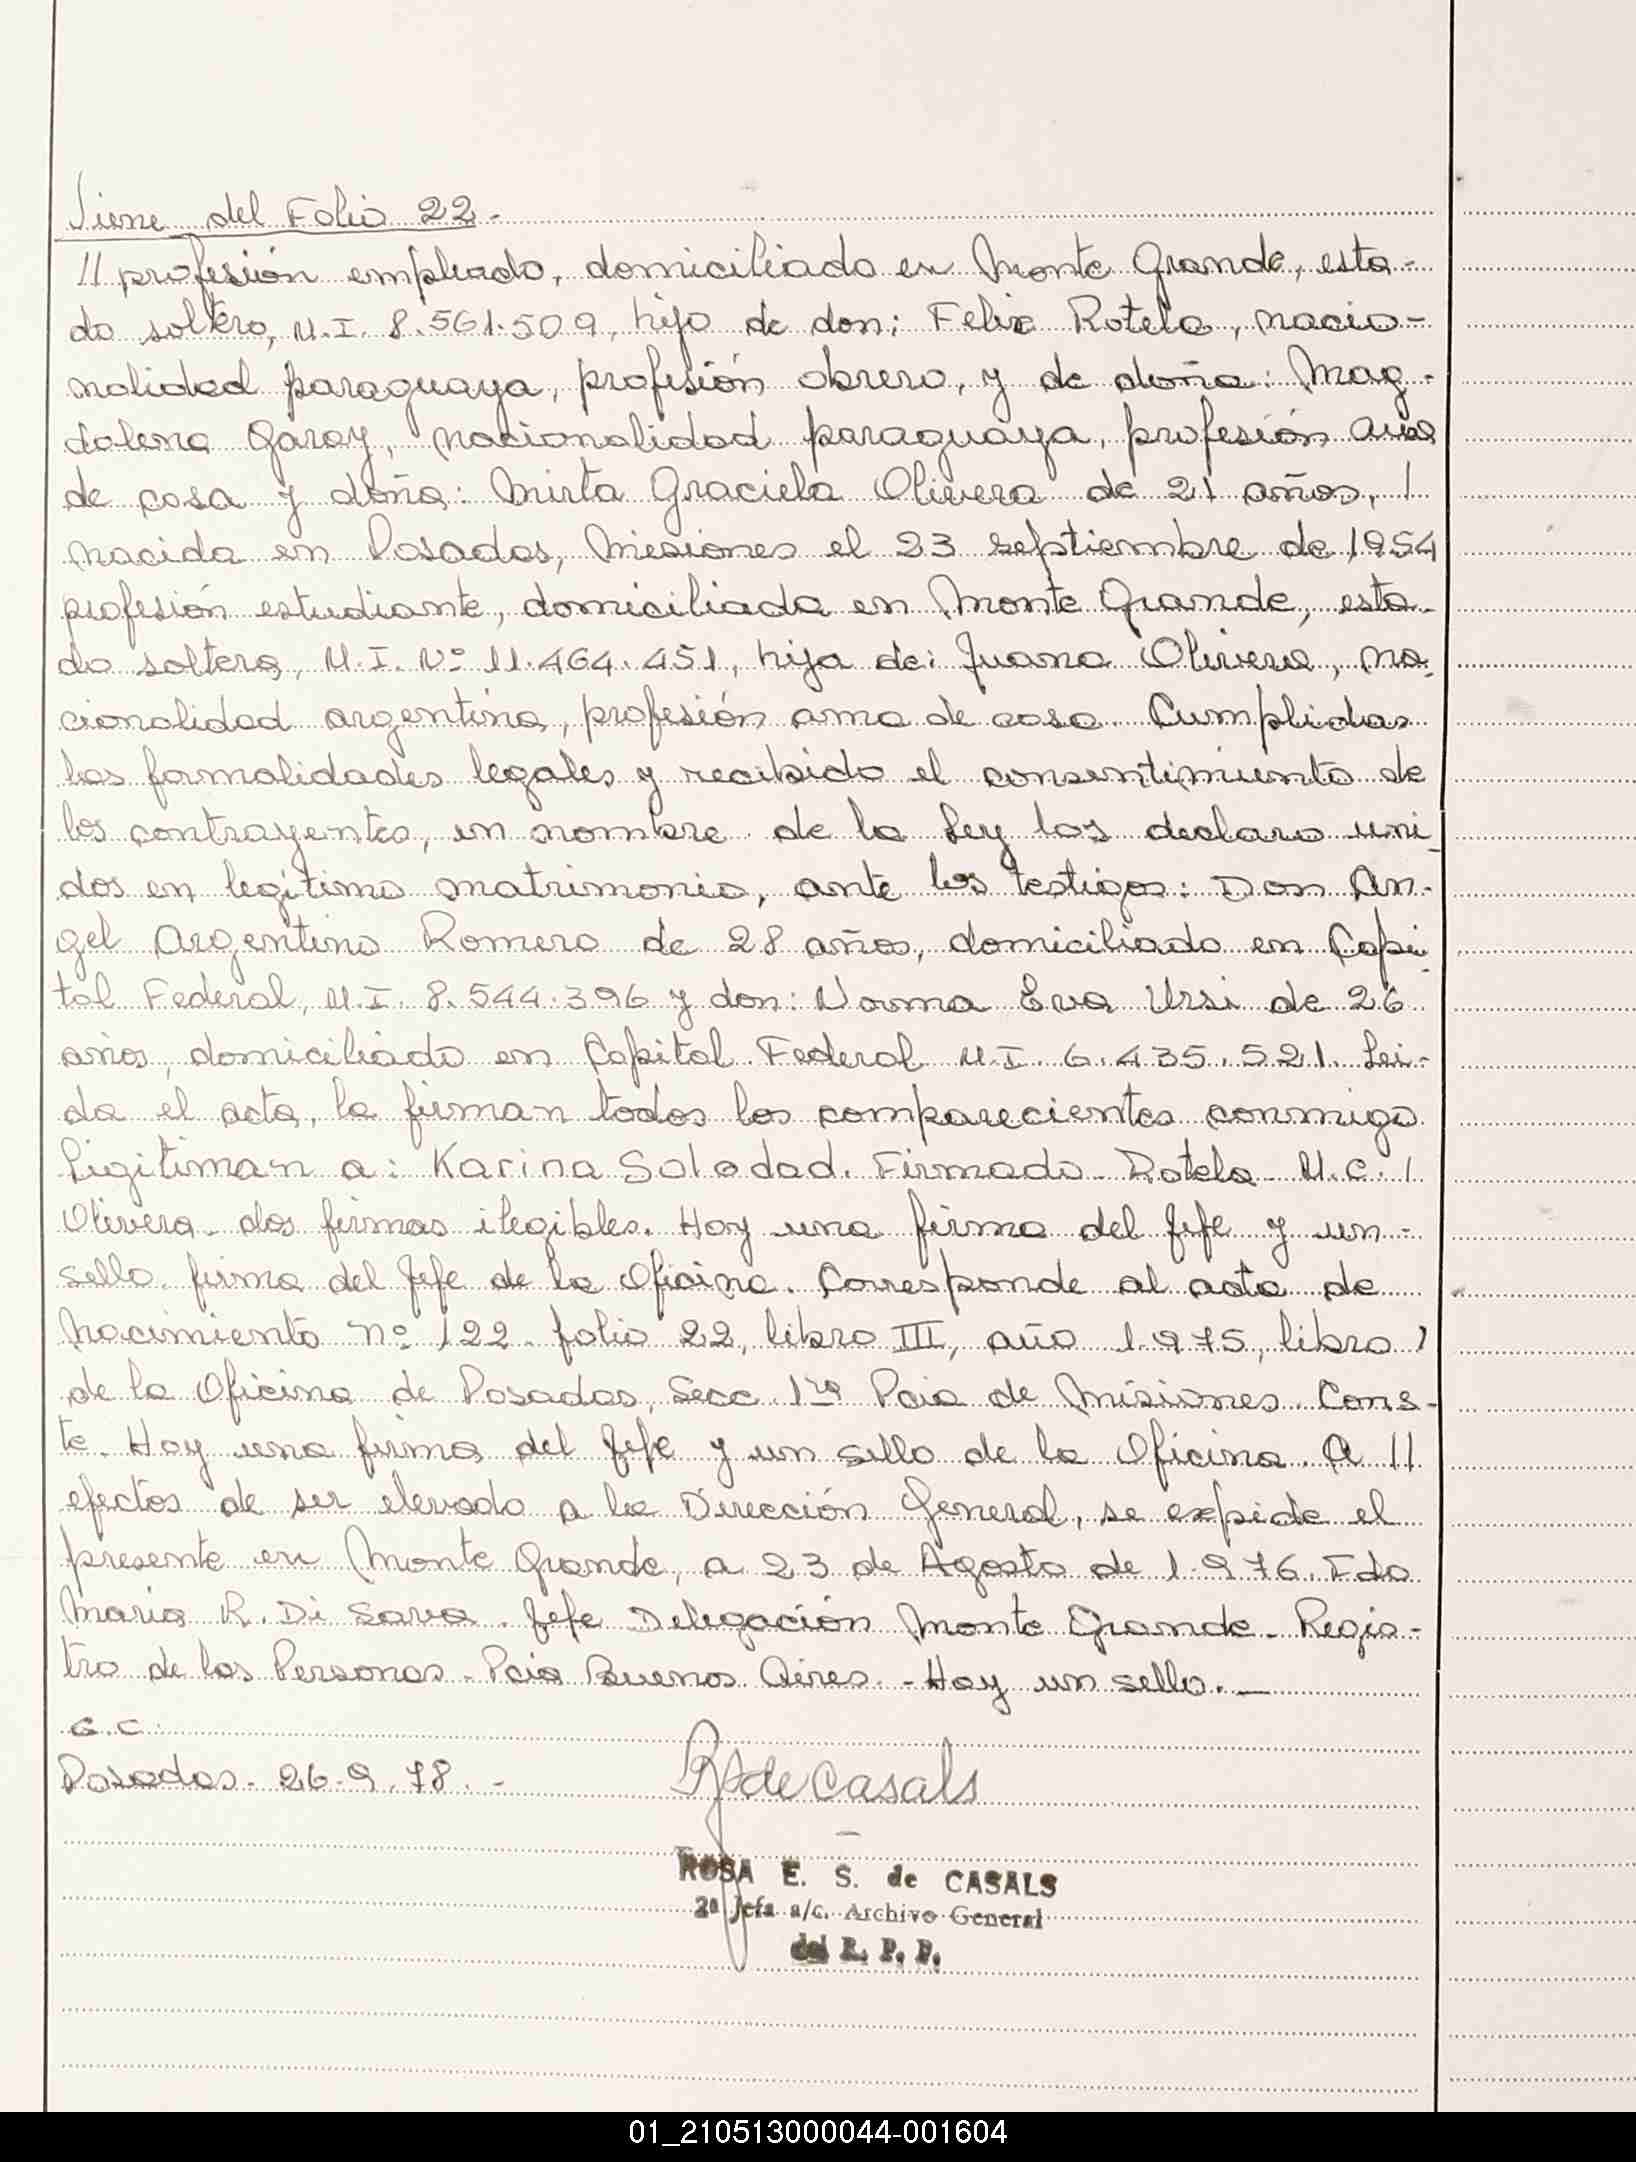 Viene del Folio 22.-
// profesión empleado, domiciliado en Monte Grande, esta-
do soltero, M.I. 8.561.509, hijo de don: Felix Rotela, nacio-
nalidad paraguaya, profesión obrero, y de doña: Mag-
dalena Garay, nacionalidad paraguaya, profesión ama
de casa y doña: Mirta Graciela Olivera de 21 años, /
nacida en Posadas, Misiones el 23 septiembre de 1954
profesión estudiante, domiciliada en Monte Grande, esta-
do soltera, M.I. Nº 11.464.451, hija de: Juana Olivera, na-
cionalidad argentina, profesión ama de casa. Cumplidas
las formalidades legales y recibido el consentimiento de
los contrayentes, en nombre de la Ley los declaro uni-
dos en legítimo matrimonio, ante los testigos: Don An-
gel Argentino Romero de 28 años, domiciliado en Capi-
tal Federal, M.I. 8.544.396 y don: Norma Eva Ursi de 26
años, domiciliado en Capital Federal M.I. 6.435.521. Lei-
da el acta, la firman todos los comparecientes conmigo
Ligitiman a: Karina Soledad. Firmado- Rotela- M.C. /
Olivera- dos firmas ilegibles. Hay una firma del Jefe y un-
sello. firma del Jefe de la Oficina. Corresponde al acta de
Nacimiento nº 122 folio 22, libro III, año 1.975, libro /
de la Oficina de Posadas, Secc 1ra Pcia de Misiones. Cons-
te. Hay una firma del Jefe y un sello de la Oficina. A //
efectos de ser elevado a la Dirección General, se expide el
presente en Monte Grande, a 23 de Agosto de 1.976. Fdo
Maria R. Di Sarva. Jefe Delegación Monte Grande- Regis-
tro de las Personas- Pcia Buenos Aires.- Hay un sello.-
G.C.
Posadas- 26-9-78.-
R de Casals
ROSA E. S. de CASALS
2ª Jefa a/c. Archivo General
del R. P. P.
01_210513000044-001604